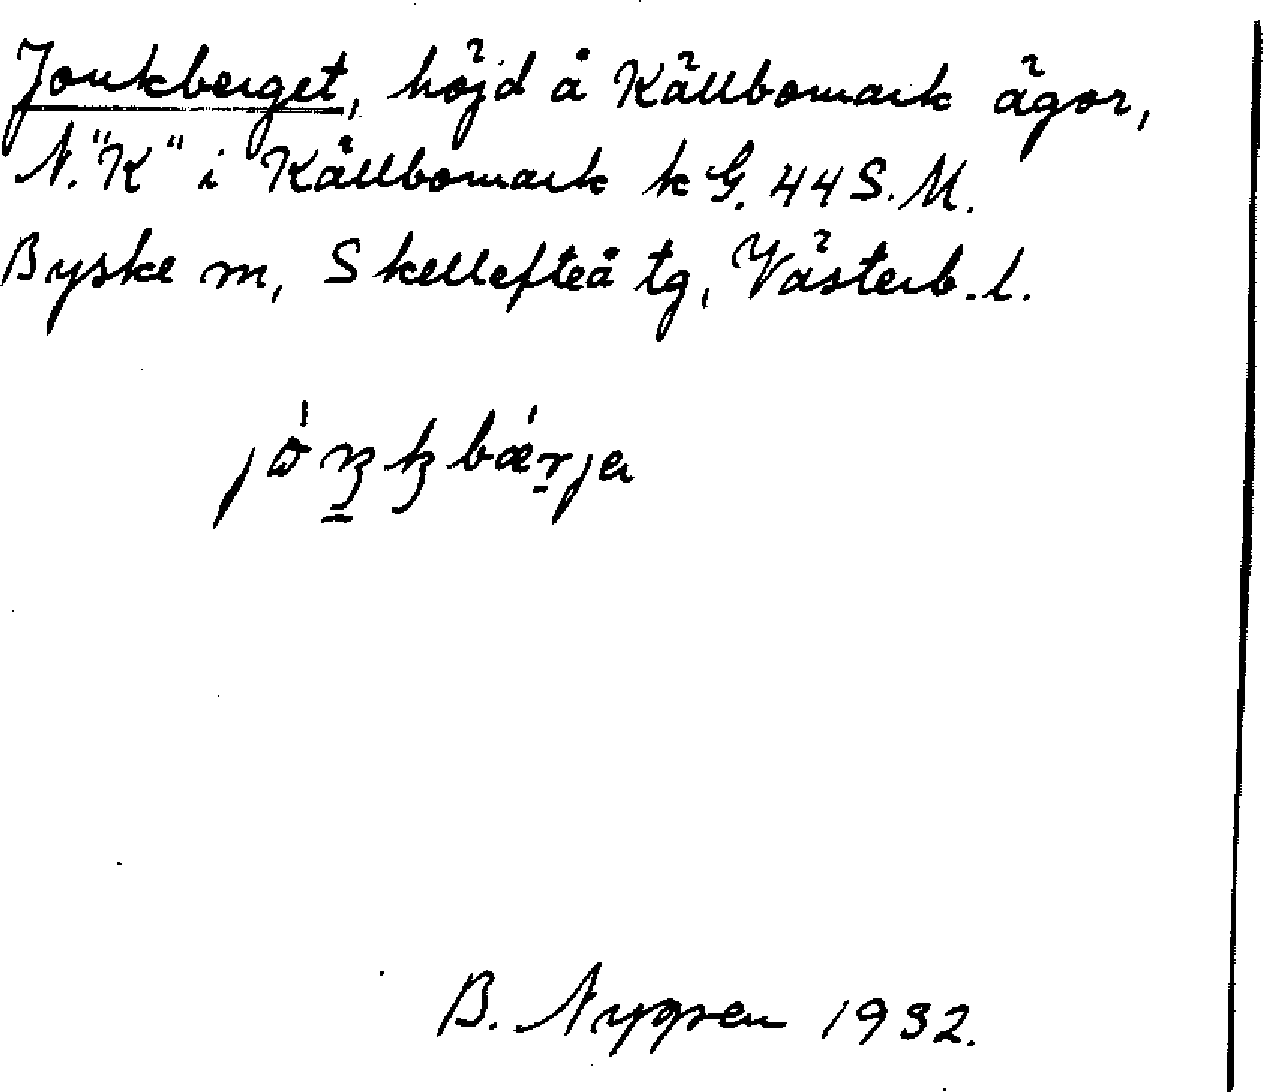 Jonkberget, höjd å Källbomark ägor,
N. "K" i Källbomark k G. 44 S. M.
Byske m, Skellefteå tg, Västerb. l.
B. Nygren 1932.